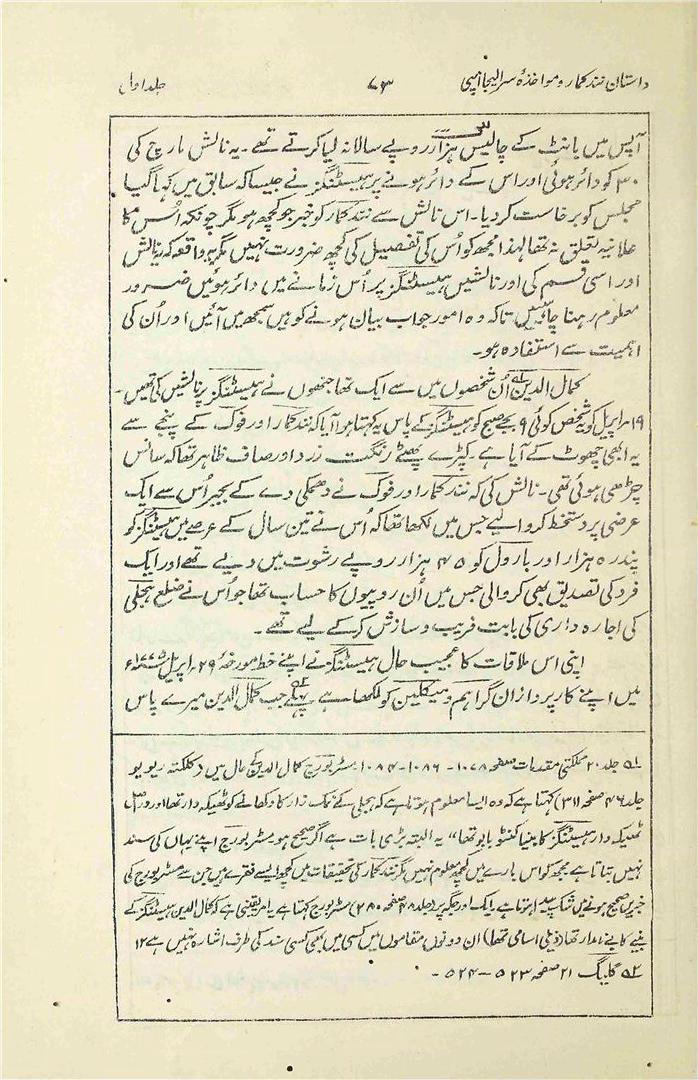 داستان نندکمار و مواخذۂ سر الیجا امپی ۷۳ جلد اول
آپس میں بانٹ کے چالیس ہزار روپے سالانہ لیا کرتے تھے۔ یہ نالش مارچ کی
۳۰ کو دائر ہوئی اور اس کے دائر ہونے پر ہیسٹنگز نے جیسا کہ سابق میں کہا گیا
مجلس کو برخاست کر دیا۔ اس نالش سے نندکمار کو خبر جو کچھ ہو مگر چونکہ اُس کا
علانیہ تعلق نہ تھا لہذا مجھ کو اُس کی تفصیل کی کچھ ضرورت نہیں مگر یہ واقعہ کہ یہ نالش
اور اسی قسم کی اور نالشیں ہیسٹنگز پر اُس زمانے میں دائر ہوئیں ضرور
معلوم رہنا چاہئیں تاکہ وہ امور جواب بیان ہونے کو ہیں سمجھ میں آئیں اور اُن کی
اہمیت سے استفادہ ہو۔
کمال الدین اُن شخصوں میں سے ایک تھا جنھوں نے ہیسٹنگز پر نالشیں کی تھیں۔
۱۹ اپریل کو یہ شخص کوئی ۹ بجے صبح کو ہیسٹنگز کے پاس یہ کہتا ہوا آیا کہ نندکمار اور فوک کے پنجے سے
یہ ابھی چھوٹ کے آیا ہے۔ کپڑے پھٹے رنگت زرد اور صاف ظاہر تھا کہ سانس
چڑھی ہوئی تھی۔ نالش کی کہ نندکمار اور فوک نے دھمکی دے کے بجبر اُس سے ایک
عرضی پر دستخط کروا لیے جس میں لکھا تھا کہ اُس نے تین سال کے عرصے میں ہیسٹنگز کو
پندرہ ہزار اور بارول کو ۴۵ ہزار روپے رشوت میں دیے تھے اور ایک
فرد کی تصدیق بھی کروالی جس میں اُن روپیوں کا حساب تھا جو اُس نے ضلع ہجلی
کی اجارہ داری کی بابت فریب و سازش کر کے لیے تھے۔
اپنی اس ملاقات کا عجیب حال ہیسٹنگز نے اپنے خط مورخۂ ۲۹ اپریل ۱۷۷۵ء
میں اپنے کارپردازان گراہم و میکلین کو لکھا ہے پہلے جب کمال الدین میرے پاس
۱؎ جلد ۲۰ ملکتی مقدمات صفحہ ۱۰۷۸۔ ۱۰۸۶۔ ۱۰۸۴۔ مسٹر بورج کمال الدین کے حال میں (کلکتہ ریویو
جلد ۴۶ صفحہ ۳۱۱) کہتا ہے کہ وہ ایسا معلوم ہوتا ہے کہ ہجلی کے نمک زار کا دکھانے کو ٹھیکہ دار تھا اور دراصل
ٹھیکہ دار ہیسٹنگز کا بنیا کنٹو بابو تھا" یہ البتہ بڑی بات ہے اگر صحیح ہو مسٹر بورج اپنے یہاں کی سند
نہیں بتاتا ہے مجھ کو اس بارے میں کچھ معلوم نہیں مگر نندکمار کی تحقیقات میں کچھ ایسے فقرے ہیں جن سے مسٹر بورج کی
خبر میں صحیح ہونے میں شک پیدا ہوتا ہے۔ ایک اور جگہ پر (جلد ۶۸ صفحہ ۲۸۰) مسٹر بورج کہتا ہے یہ امر یقینی ہے کہ کمال الدین ہیسٹنگز کے
بنیے کا بے نامدار تھا (ذیلی اسامی تھا) ان دونوں مقاموں میں کسی میں بھی کسی سند کی طرف اشارہ نہیں ہے ۱۲
۲؎ گلیگ ۲۱ صفحہ ۵۲۳ — ۵۲۴۔